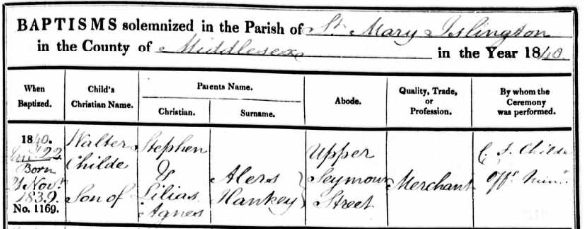 BAPTISMS solemnized in the Parish of St. Mary Islington
in the County of Middlesex in the Year 1840.
When Baptized.
Child's Christian Name.
Parents Name.
Christian.
Surname.
Abode.
Quality, Trade, or Profession.
By whom the Ceremony was performed.
1840.
22
Born
Novr
1839.
No. 1169.
Walter
Childe
Son of
Stephen
&
Lilias
Agnes
Alers
Hankey
Upper
Seymour
Street
Merchant
Offg Minr